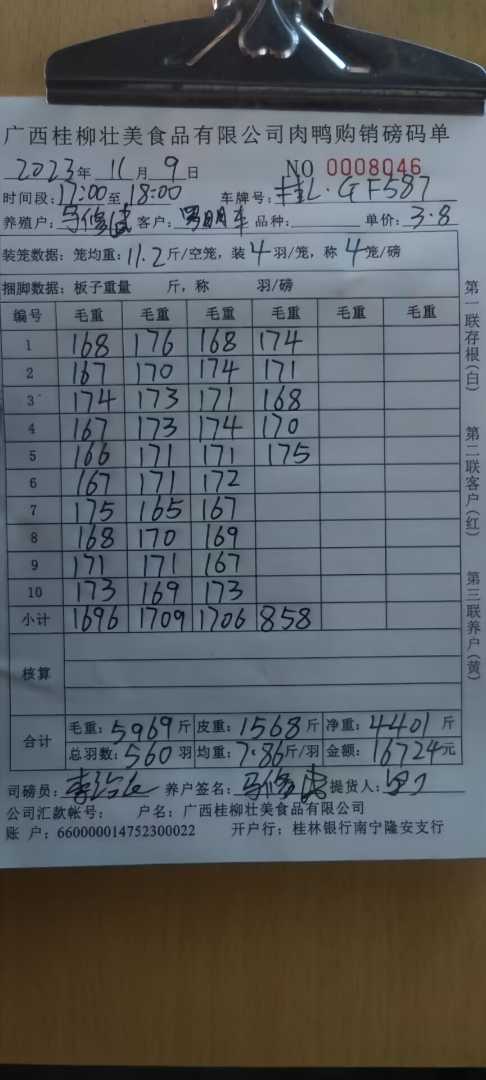 广西桂柳壮美食品有限公司肉鸭购销磅码单
2023年 11月 9日 NO 0008046
时间段:17:00至18:00 车牌号:桂L·GF587
养殖户: 客户: 品种: 单价:3.8
装笼数据:笼均重:11.2斤/空笼,装4羽/笼,称4笼/磅
捆脚数据:板子重量 斤,称 羽/磅
编号 毛重 毛重 毛重 毛重 毛重 毛重
1 168 176 168 174
2 167 170 174 171
3 174 173 171 168
4 167 173 174 170
5 166 171 171 175
6 167 171 172
7 175 165 167
8 168 170 169
9 171 171 167
10 173 169 173
小计 1696 1709 1706 858
核算
合计 毛重:5969斤 皮重:1568斤 净重:4401斤
总羽数:560羽 均重:7.86斤/羽 金额:16724元
司磅员: 养户签名: 提货人:
公司汇款帐号: 户名:广西桂柳壮美食品有限公司
账 户:660000014752300022 开户行:桂林银行南宁隆安支行
第一联存根(白)
第二联客户(红)
第三联养户(黄)